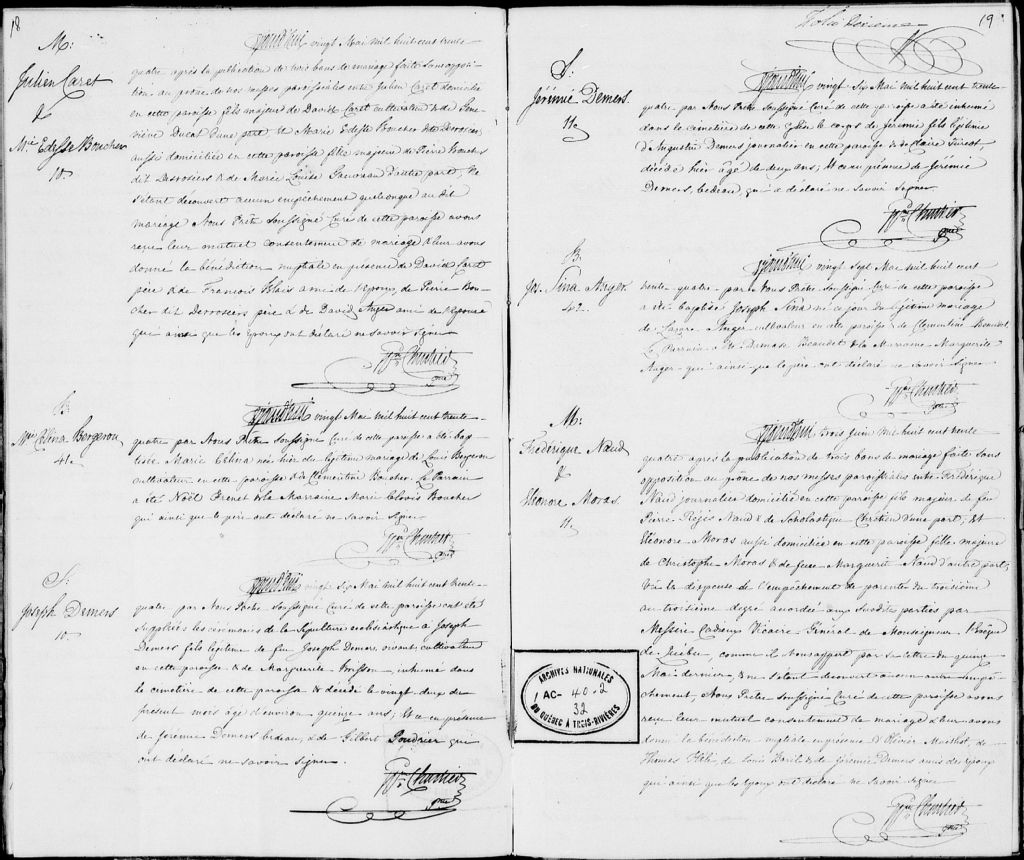 18
M:
Julien Caret
&
Mie Edesse Boucher
10.
Aujourd'hui vingt Mai mil huit cent trente
quatre après la publication de trois bans de mariage faite sans opposi-
tion au prône de nos messes paroissiales entre Julien Caret domicilié
en cette paroisse fils majeur de David Caret cultivateur & de Gene-
viève d'une part et Marie Edesse Boucher dite Desrosiers
aussi domiciliée en cette paroisse fille majeure de Pierre Boucher
dit Desrosiers & de Marie Louise d'autre part, Ne
s'étant découvert aucun empêchement quelconque au dit
mariage Nous Prêtre Soussigné Curé de cette paroisse avons
reçu leur mutuel consentement de mariage & leur avons
donné la bénédiction nuptiale en présence de David Caret
père & de François Blais ami de l'époux de Pierre Bou-
cher dit Desrosiers père & de David Auger ami de l'épouse
qui ainsi que les époux ont déclaré ne savoir signer
B.
Mie Célina Bergeron
41.
Aujourd'hui vingt Mai mil huit cent trente
quatre par Nous Prêtre Soussigné Curé de cette paroisse a été bap-
tisée Marie Célina née hier du légitime mariage de Louis Bergeron
cultivateur en cette paroisse & de Clémentine Boucher. Le Parrain
a été Noël Grenet & la Marraine Marie Boucher
qui ainsi que le père ont déclaré ne savoir signer.
S:
Joseph Demers
10.
Aujourd'hui vingt Six Mai mil huit cent trente
quatre par Nous Prêtre Soussigné Curé de cette paroisse ont été
suppléées les cérémonies de la Sépulture ecclésiastique à Joseph
Demers fils légitime de feu Joseph Demers vivant cultivateur
en cette paroisse & de Marguerite inhumé dans
le cimetière de cette paroisse & décédé le vingt deux du
présent mois âgé d'environ quinze ans; Et ce en présence
de Jérémie Demers bedeau, & de Gilbert Poudrier qui
ont déclaré ne savoir signer
Folio
19
S:
Jérémie Demers.
11.
Aujourd'hui vingt Six Mai mil huit cent trente
quatre par Nous Prêtre Soussigné Curé de cette paroisse a été inhumé
dans le cimetière de cette Eglise le corps de Jérémie fils légitime
d'Augustin Demers journalier en cette paroisse & de Claire
décédé hier âgé de deux ans; Et ce en présence de Jérémie
Demers, bedeau, qui a déclaré ne savoir signer
B.
Jos. Sina Auger
42.
Aujourd'hui vingt Sept Mai mil huit cent
trente-quatre par Nous Prêtre Soussigné Curé de cette paroisse
a été baptisé Joseph Sina né ce jour du légitime mariage
de Lazare Auger cultivateur en cette paroisse & de Clémentine Beaudet.
Le Parrain a été Damase Beaudet & la Marraine Marguerite
Auger qui ainsi que le père ont déclaré ne savoir signer
M:
Fréderique Naud
&
Eléonore Moras.
11.
Aujourd'hui trois Juin mil huit cent trente
quatre après la publication de trois bans de mariage faite sans
opposition au prône de nos messes paroissiales entre Fréderique
Naud journalier domicilié en cette paroisse fils majeur de feu
Pierre Régis Naud & de Scholastique Chrétien d'une part; Et
Eléonore Moras aussi domiciliée en cette paroisse fille majeure
de Christophe Moras & de feue Marguerite Naud d'autre part;
Vu la dispense de l'empêchement de parenté du troisième
au troisième degré accordée aux susdites parties par
Messire Cadieux Vicaire Général de Monseigneur l'Evêque
de Québec, comme il nous appert par sa lettre du quinze
Mai dernier, & ne s'étant découvert aucun autre empê-
chement, Nous Prêtre soussigné Curé de cette paroisse avons
reçu leur mutuel consentement de mariage & leur avons
donné la bénédiction nuptiale en présence d'Olivier de
Thomas de Louis Baril & de Jérémie Demers amis des époux
qui ainsi que les époux ont déclaré ne savoir signer
ARCHIVES NATIONALES
AC- 40.2
32
DU QUÉBEC À TROIS-RIVIÈRES